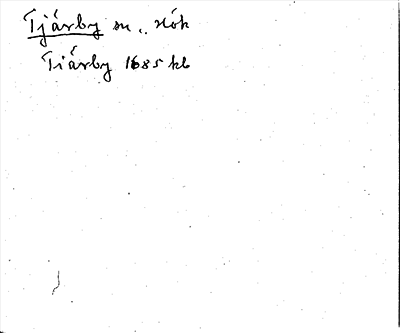 Tjärby sn .. Hök
Tiärby 1685 kb